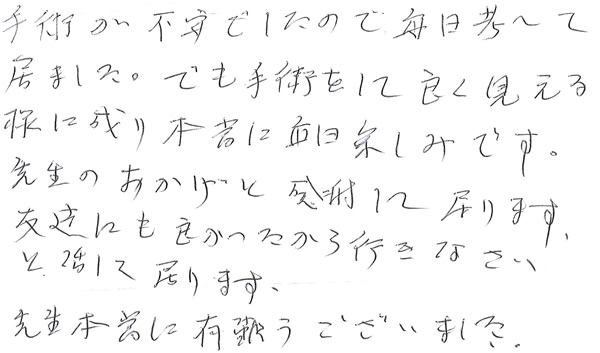 手術が不安でしたので毎日考へて
居ました。でも手術をして良く見える
様に成り本当に毎日楽しみです。
先生のおかげと感謝して居ります、
友達にも良かったから行きなさい
と話して居ります、
先生本当に有難うございました。